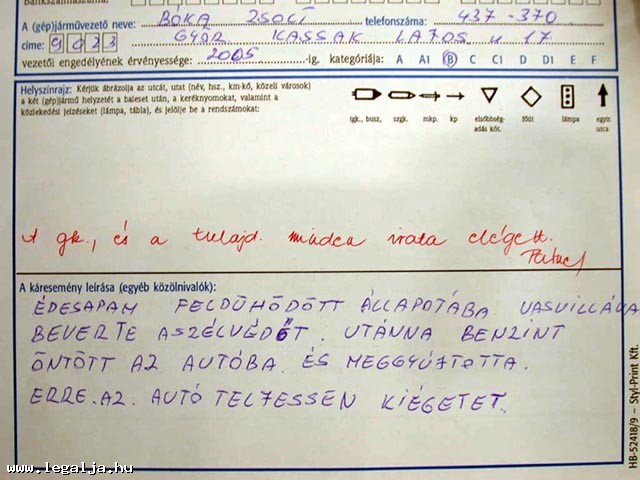 A (gép)járművezető neve: BÓKA ZSOCI telefonszáma: 437-370
címe: 9023 GYŐR KASSAK LAJOS u 17
vezetői engedélyének érvényessége: 2005 -ig, kategóriája: A A1 B C C1 D D1 E F
Helyszínrajz: Kérjük ábrázolja az utcát, utat (név, hsz., km-kő, közeli városok)
a két (gép)jármű helyzetét a baleset után, a keréknyomokat, valamint a
közlekedési jelzéseket (lámpa, tábla), és jelölje be a rendszámokat:
tgk., busz, szgk. mkp. kp elsőbbség-adás köt. főút lámpa egyir. utca
A gk., és a tulajd. minden irata elégett.
A káresemény leírása (egyéb közölnivalók):
ÉDESAPAM FELDÜHÖDÖTT ÁLLAPOTÁBA VASVILLÁVA
BEVERTE A SZÉLVÉDŐT. UTÁNNA BENZINT
ÖNTÖTT AZ AUTÓBA. ÉS MEGGYÚJTOTTA.
ERRE.AZ. AUTÓ TELJESSEN KIÉGETET.
HB-52418/9 – Styl-Print Kft.
www.legalja.hu